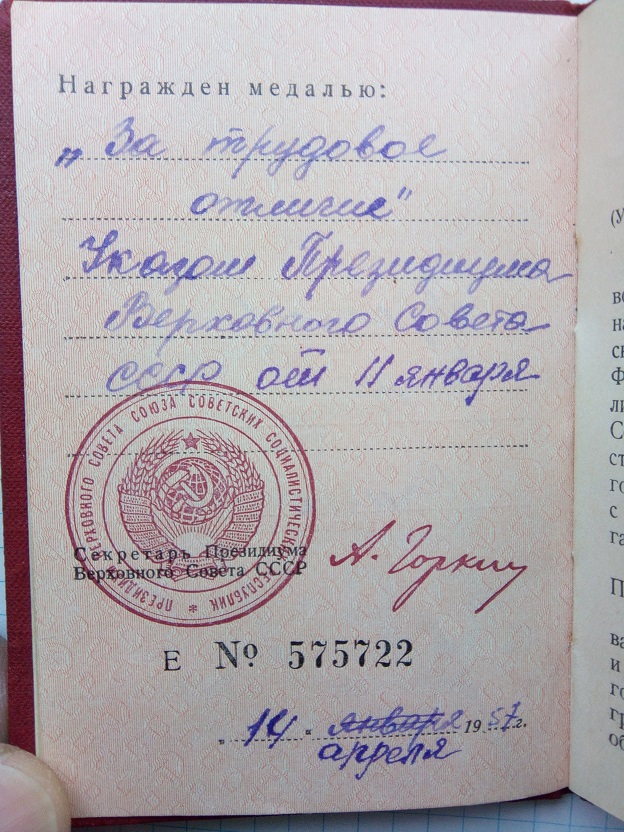 Награжден медалью:
„За трудовое
отличие"
Указом Президиума
Верховного Совета
СССР от 11 января
ПРЕЗИДИУМ ВЕРХОВНОГО СОВЕТА СОЮЗА СОВЕТСКИХ СОЦИАЛИСТИЧЕСКИХ РЕСПУБЛИК *
Секретарь Президиума
Верховного Совета СССР
А. Горкин
Е № 575722
„14" января 1957 г.
апреля